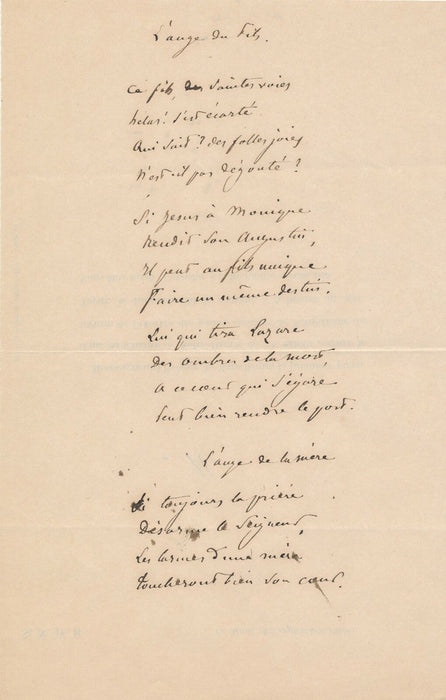 L'ange du fils.
Ce fils, des saintes voies
hélas! s'est écarté
Qui sait? des folles joies
N'est-il pas dégouté?
Si Jesus à Monique
Rendit son Augustin,
Il peut au fils unique
Faire un même destin.
Lui qui tira Lazare
Des ombres de la mort,
A ce cœur qui s'égare
Peut bien rendre le port.
L'ange de la mère
Si toujours la prière
Désarme le Seigneur,
Les larmes d'une mère
toucheront bien son cœur.